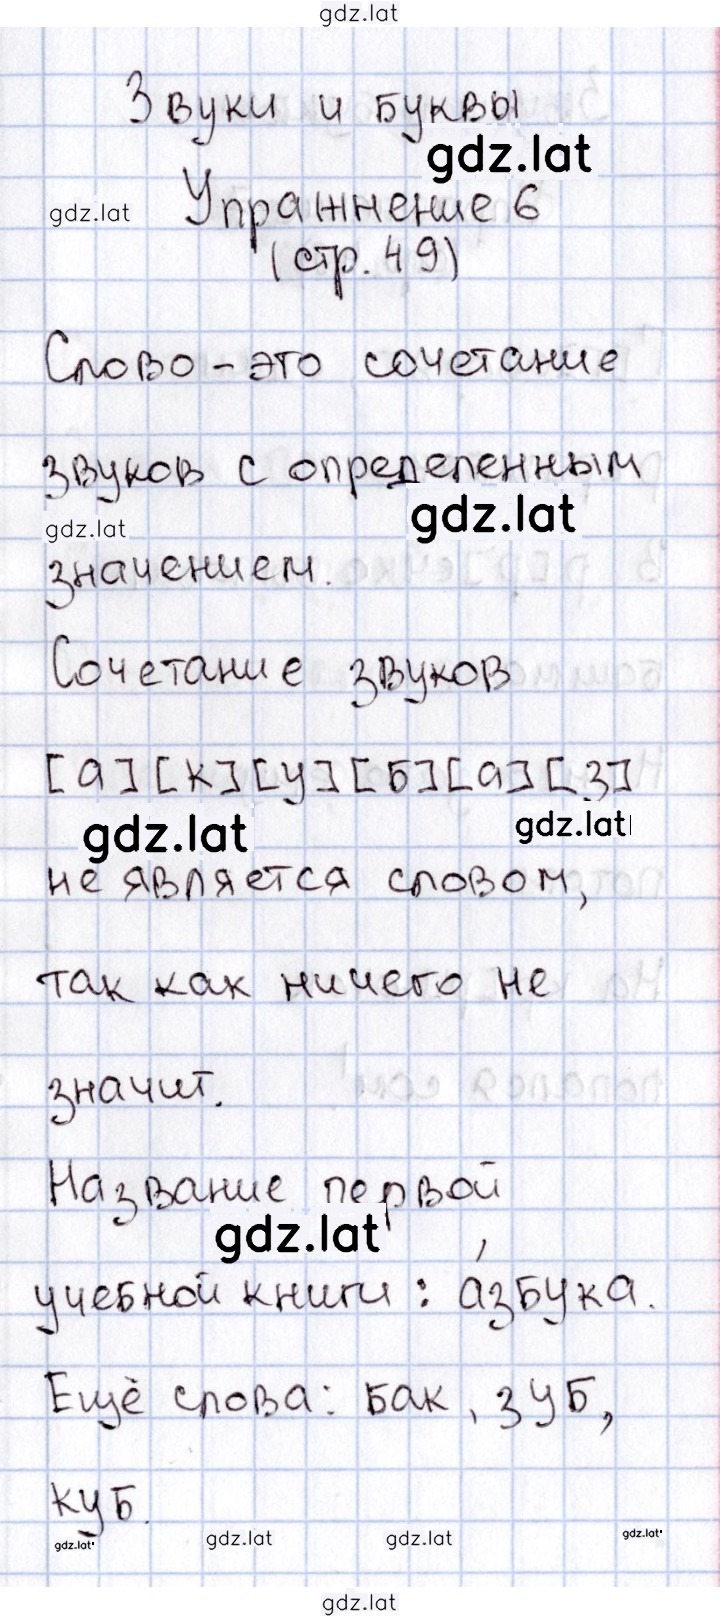 gdz.lat
Звуки и буквы
gdz.lat
gdz.lat
Упражнение 6
(стр. 49)
Слово - это сочетание
звуков с определенным
gdz.lat
gdz.lat
значением.
Сочетание звуков
[а][к][у][б][а][з]
gdz.lat
gdz.lat
не является словом,
так как ничего не
значит.
Название первой
gdz.lat
учебной книги: а́збука.
Ещё слова: бак, зуб,
куб.
gdz.lat
gdz.lat
gdz.lat
gdz.lat
gdz.lat